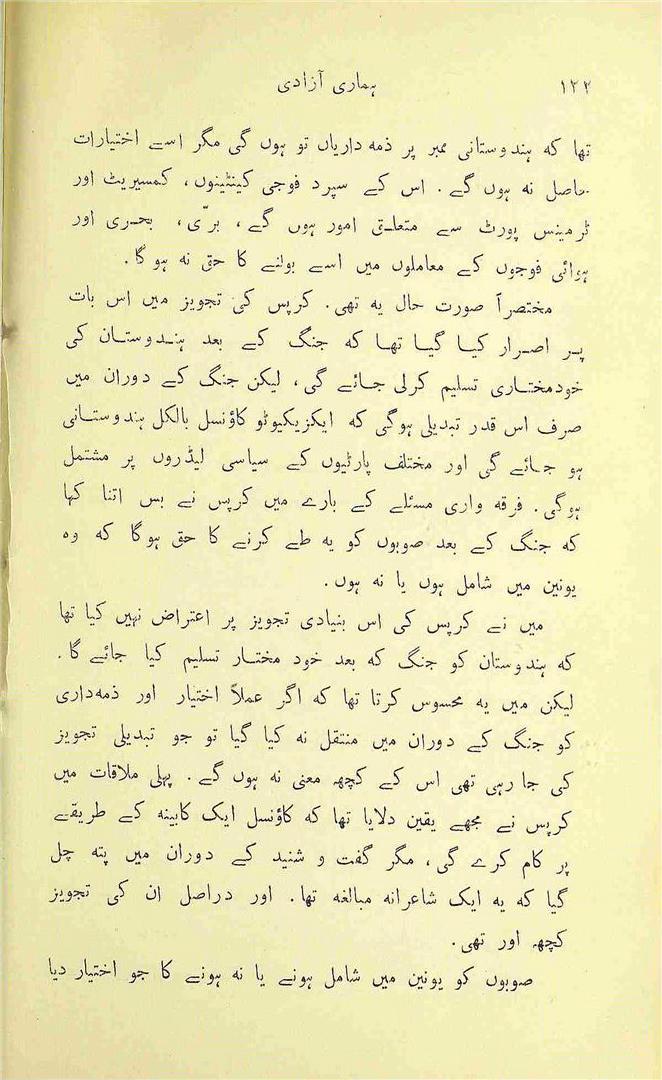 ۱۲۲ ہماری آزادی
تھا کہ ہندوستانی ممبر پر ذمہ داریاں تو ہوں گی مگر اسے اختیارات
حاصل نہ ہوں گے۔ اس کے سپرد فوجی کینٹینوں، کمسیریٹ اور
ٹرمینس پورٹ سے متعلق امور ہوں گے، برّی، بحری اور
ہوائی فوجوں کے معاملوں میں اسے بولنے کا حق نہ ہوگا۔
مختصراً صورت حال یہ تھی۔ کرپس کی تجویز میں اس بات
پر اصرار کیا گیا تھا کہ جنگ کے بعد ہندوستان کی
خودمختاری تسلیم کرلی جائے گی، لیکن جنگ کے دوران میں
صرف اس قدر تبدیلی ہوگی کہ ایکزیکیوٹو کاؤنسل بالکل ہندوستانی
ہو جائے گی اور مختلف پارٹیوں کے سیاسی لیڈروں پر مشتمل
ہوگی۔ فرقہ واری مسئلے کے بارے میں کرپس نے بس اتنا کہا
کہ جنگ کے بعد صوبوں کو یہ طے کرنے کا حق ہوگا کہ وہ
یونین میں شامل ہوں یا نہ ہوں۔
میں نے کرپس کی اس بنیادی تجویز پر اعتراض نہیں کیا تھا
کہ ہندوستان کو جنگ کہ بعد خود مختار تسلیم کیا جائے گا۔
لیکن میں یہ محسوس کرتا تھا کہ اگر عملاً اختیار اور ذمہ‌داری
کو جنگ کے دوران میں منتقل نہ کیا گیا تو جو تبدیلی تجویز
کی جا رہی تھی اس کے کچھ معنی نہ ہوں گے۔ پہلی ملاقات میں
کرپس نے مجھے یقین دلایا تھا کہ کاؤنسل ایک کابینہ کے طریقے
پر کام کرے گی، مگر گفت و شنید کے دوران میں پتہ چل
گیا کہ یہ ایک شاعرانہ مبالغہ تھا۔ اور دراصل ان کی تجویز
کچھ اور تھی۔
صوبوں کو یونین میں شامل ہونے یا نہ ہونے کا جو اختیار دیا